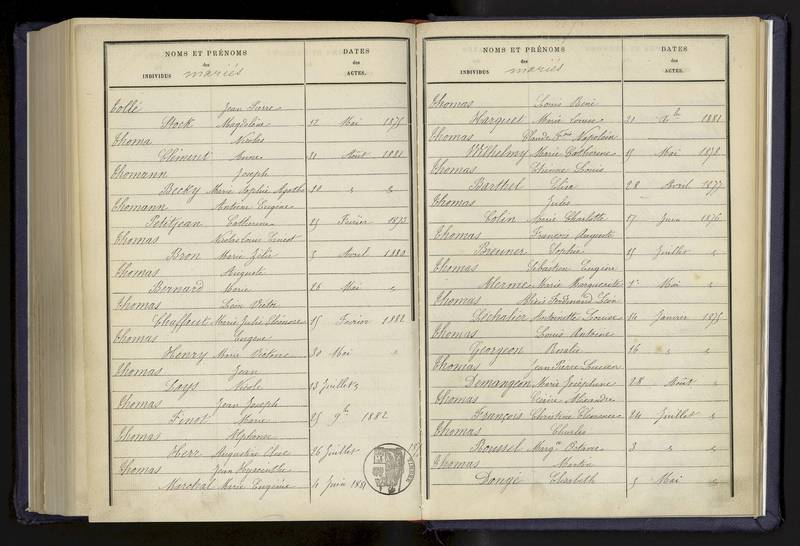 NOMS ET PRÉNOMS
des
INDIVIDUS mariés
DATES
des
ACTES.
Collé Jean Pierre
Stock Magdeleine 12 Mai 1875
Thoma Nicolas
Clément Anne 31 Août 1881
Thomann Joseph
Becky Marie Sophie Agathe 20 " "
Thomann Antoine Eugène
Petitjean Catherine 19 Février 1873
Thomas Nicolas Louis Ernest
Bron Marie Zélie 3 Avril 1880
Thomas Auguste
Bernard Marie 26 Mai "
Thomas Léon Victor
Chaffaut Marie Julie Eléonore 15 Février 1882
Thomas Eugène
Henry Marie Victoire 30 Mai "
Thomas Jean
Loys Nicole 13 Juillet
Thomas Jean Joseph
Finot Marie 25 9bre 1882
Thomas Alphonse
Herr Augustine Elise 26 Juillet
Thomas Jean Hyacinthe
Marchal Marie Eugénie 4 Juin 1881
NOMS ET PRÉNOMS
des
INDIVIDUS mariés
DATES
des
ACTES.
Thomas Louis René
Harquet Marie Louise 21 1881
Thomas Claude Napoléon
Wilhelmy Marie Catherine 15 Mai 1878
Thomas Etienne Louis
Barthel Elisa 28 Avril 1877
Thomas Jules
Colin Marie Charlotte 17 Juin 1876
Thomas François Auguste
Breuner Sophie 15 Juillet "
Thomas Sébastien Eugène
Merme Marie Marguerite 1er Mai "
Thomas Alexis Ferdinand Léon
Lechalier Antoinette Louise 14 Janvier 1875
Thomas Louis Antoine
Georgeon Rosalie 16 " "
Thomas Jean Pierre Lucien
Demangeon Marie Joséphine 28 Août "
Thomas Césaire Alexandre
François Christine Clémence 24 Juillet "
Thomas Charles
Roussel Margte Octavie 3 " "
Thomas Martin
Dongé Elisabeth 5 Mai "